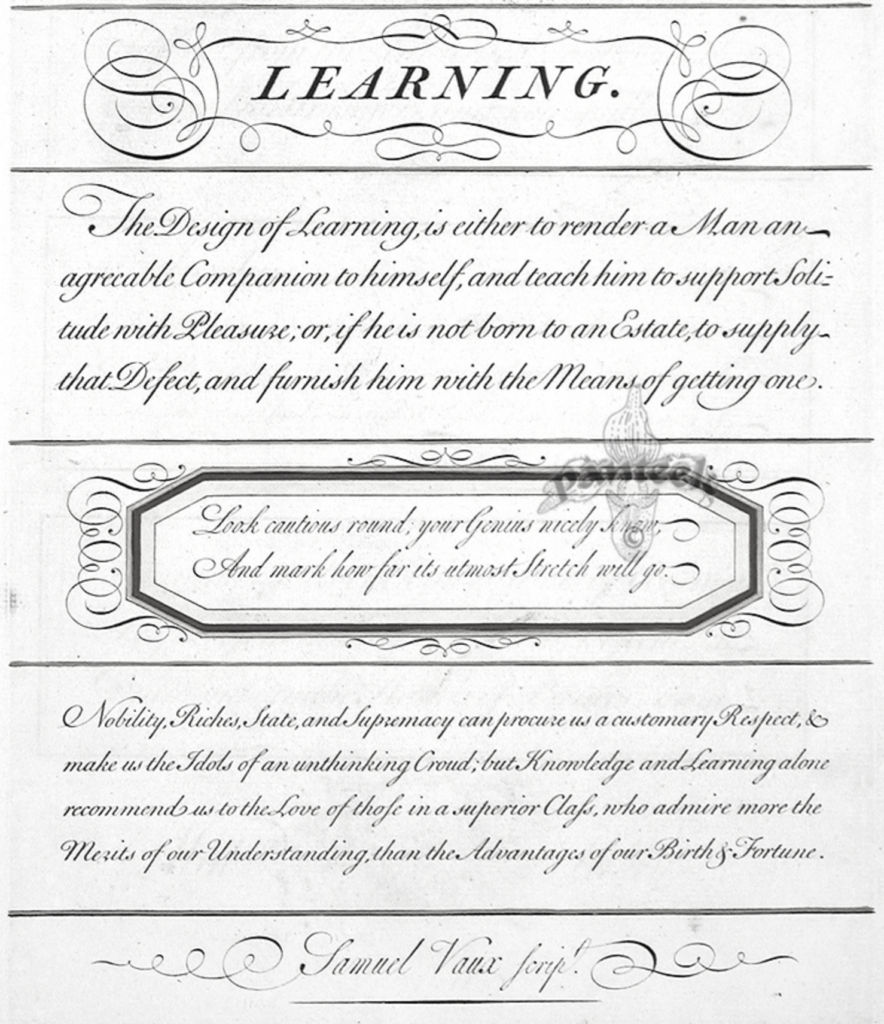 LEARNING.
The Design of Learning, is either to render a Man an
agreeable Companion to himself, and teach him to support Soli-
tude with Pleasure; or, if he is not born to an Estate, to supply
that Defect, and furnish him with the Means of getting one.
Look cautious round; your Genius nicely know,
And mark how far its utmost Stretch will go.
Nobility, Riches, State, and Supremacy can procure us a customary Respect, &
make us the Idols of an unthinking Croud; but Knowledge and Learning alone
recommend us to the Love of those in a superior Class, who admire more the
Merits of our Understanding, than the Advantages of our Birth & Fortune.
Samuel Vaux scripᵗ.
panteek
©